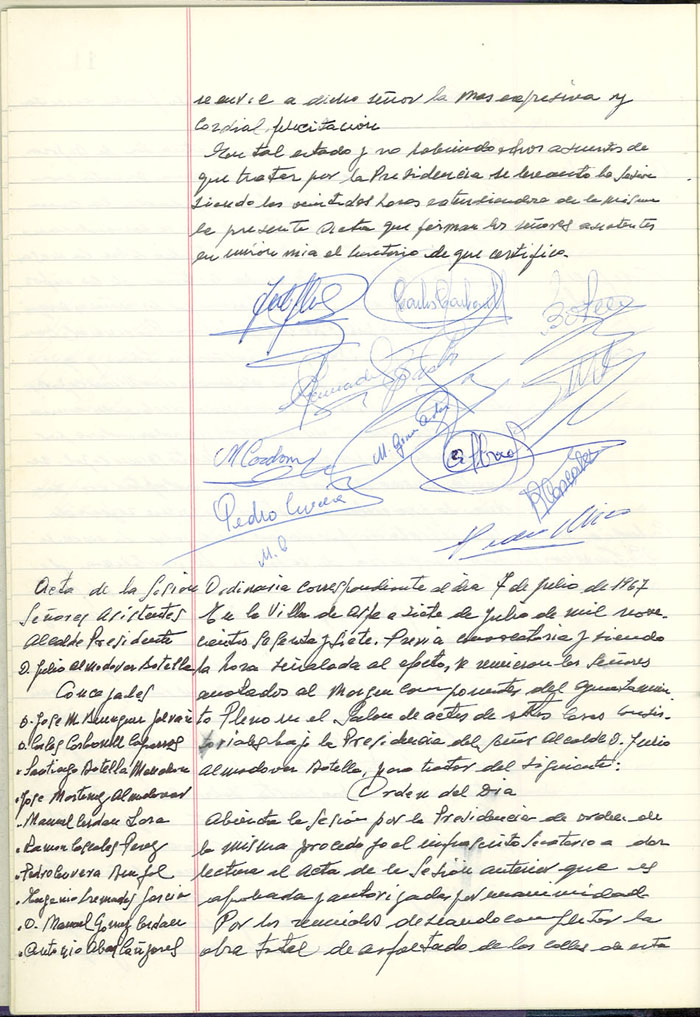 se envie a dicho señor la mas expresiva y
cordial felicitación
En tal estado y no habiendo otros asuntos de
que tratar por la Presidencia se levanto la Sesion
siendo las veintidos horas extendiendose de la misma
la presente Acta que firman los señores asistentes
en unión mia el Secretario de que certifico.
Carlos Carbonell
M Cerdan
M. Gomez
Pedro Cervera
Acta de la Sesion Ordinaria correspondiente al dia 7 de Julio de 1967
Señores Asistentes
Alcalde Presidente
D. Julio Almodovar Botella
Concejales
D. Jose M.
D. Carlos Carbonell
" Santiago Botella
" Jose Martinez Almodovar
" Manuel Cerdan
" Ramon Perez
" Pedro Cervera
" Eugenio Garcia
" D. Manuel Gomez Cerdan
" Antonio Abad
En la Villa de Aspe a siete de Julio de mil nove-
cientos sesenta y siete. Previa convocatoria y siendo
la hora señalada al efecto, se reunieron los Señores
anotados al Margen componentes del Ayuntamien-
to Pleno en el Salon de actos de estas Casas Consis-
toriales bajo la Presidencia del Señor Alcalde D. Julio
Almodovar Botella, para tratar del siguiente:
Orden del Dia
Abierta la Sesión por la Presidencia de orden de
la misma procedo yo el infrascrito Secretario a dar
lectura al Acta de la Sesión anterior que es
aprobada y autorizada por unanimidad
Por los reunidos deseando completar la
obra total de asfaltado de las calles de esta